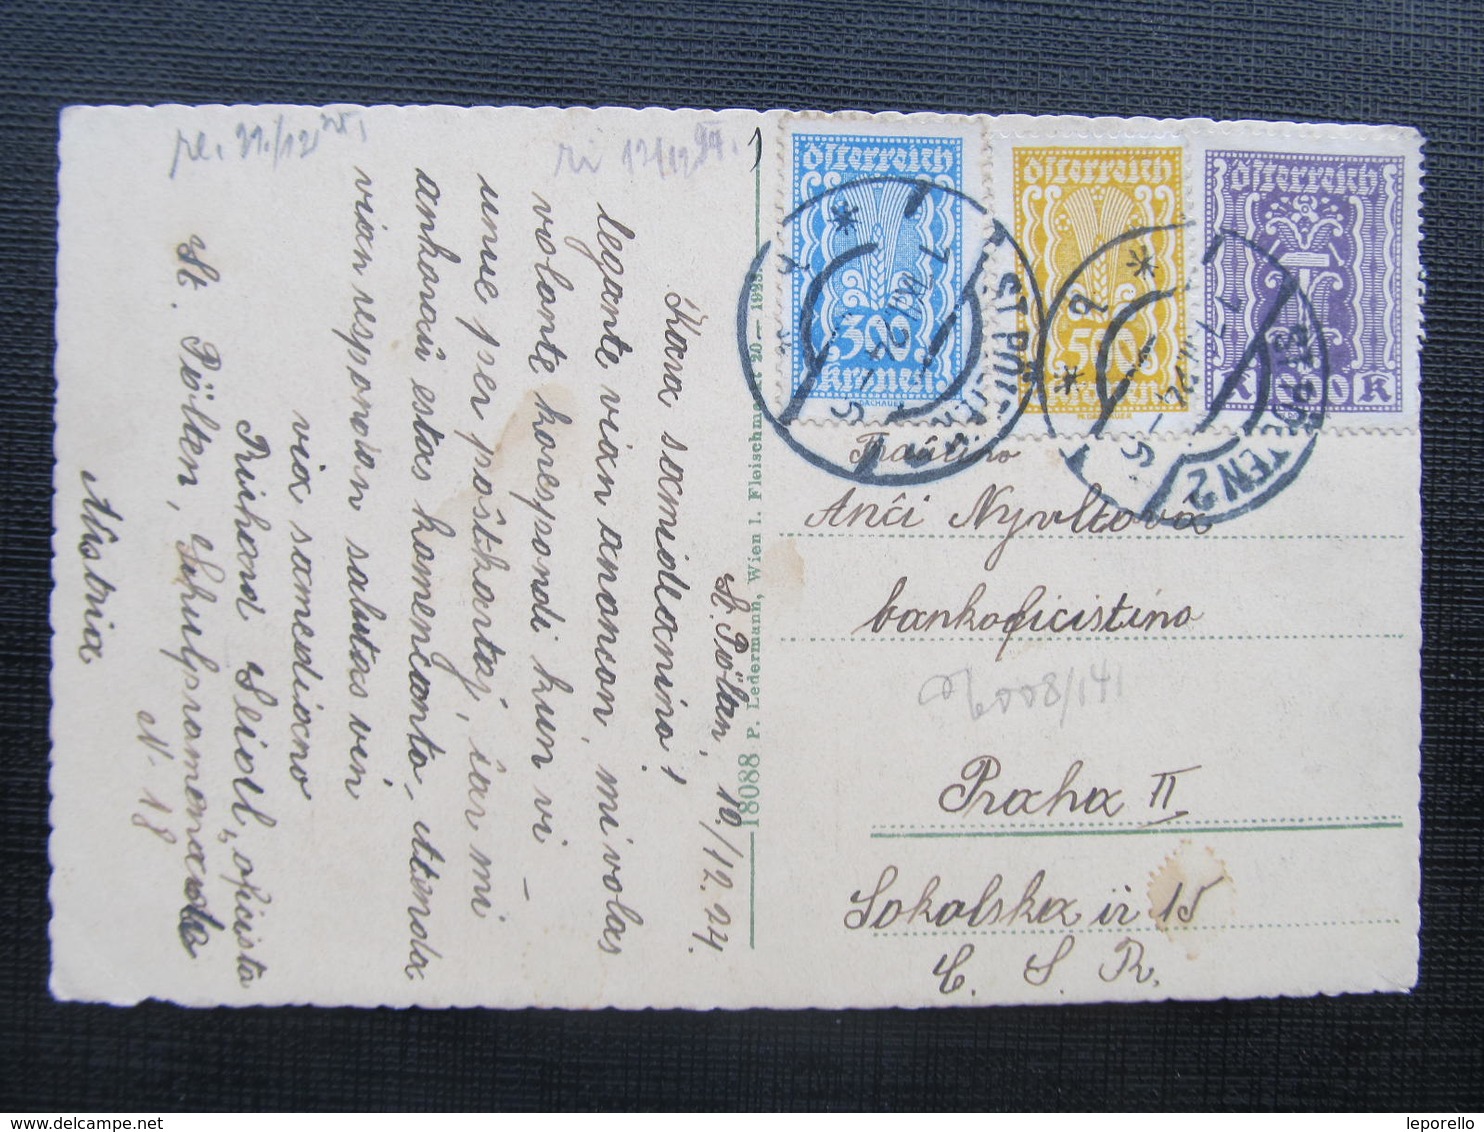 re. 22./12 25.
ri 17/12 24.
St. Pölten, 10./12.24.
Kara samideanino!
legante vian anoncon, mi volas
volonte korespondi kun vi –
unue per poŝtkartoj, ĉar mi
ankoraŭ estas komencanto. Atenda
vian respondon salutas vin
via samediano
Reinhard Seidl, oficista
St. Pölten, Schulpromenade
N. 18
Aŭstria
18088 P. Ledermann, Wien I. Fleischmarkt 20 — 1923.
Österreich
300
Kronen
Österreich
500
Kronen
Österreich
ST. PÖLTEN 2
Fraŭlino
Anĉi Nyvltova
bankoficistino
6008/141
Praha II
Sokolska ŭ 15
C. S. R.
leporello
www.delcampe.net